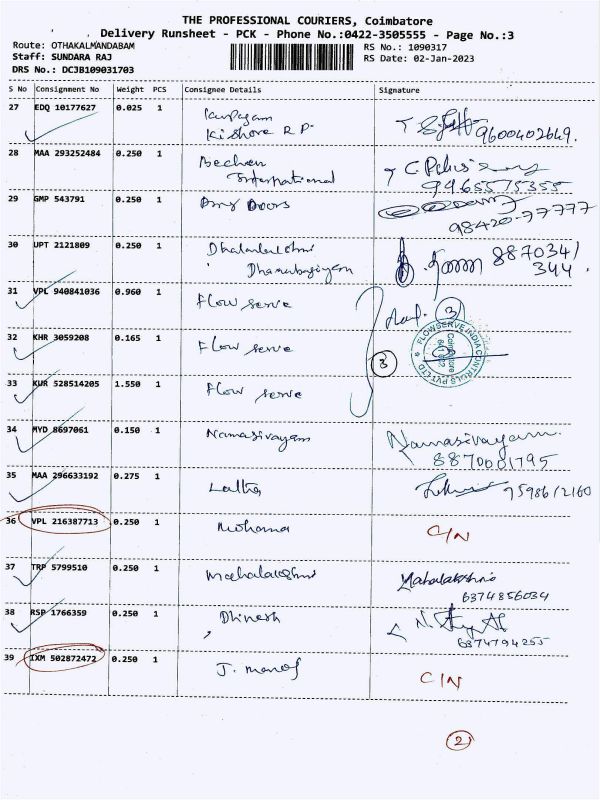 THE PROFESSIONAL COURIERS, Coimbatore
Delivery Runsheet - PCK - Phone No.:0422-3505555 - Page No.:3
Route: OTHAKALMANDABAM
RS No.: 1090317
Staff: SUNDARA RAJ
RS Date: 02-Jan-2023
DRS No.: DCJB109031703
S No Consignment No Weight PCS Consignee Details Signature
27 EDQ 10177627 0.025 1 Karpagam
Kishore R P. 9600402649.
28 MAA 293252484 0.250 1
International 9965575355
29 GMP 543791 0.250 1 Doors
98420-77777
30 UPT 2121809 0.250 1 Dhanalakshmi 887034/
344.
31 VPL 940841036 0.960 1 Flow serve 3
32 KHR 3059208 0.165 1 Flow serve 3 FLOWSERVE INDIA CONTROLS PVT LTD
Coimbatore
33 KUR 528514205 1.550 1 Flow serve
34 MYD 8697061 0.150 1 Namasivayam Namasivayam
8870001795
35 MAA 296633192 0.275 1 Latha 75986/2160
36 VPL 216387713 0.250 1 Mohana C/N
37 TRP 5799510 0.250 1 Mahalakshmi Mahalakshmi
6374856034
38 RSP 1766359 0.250 1 Dhinesh
6374794255
39 IXM 502872472 0.250 1 J. Manoj C/N
2